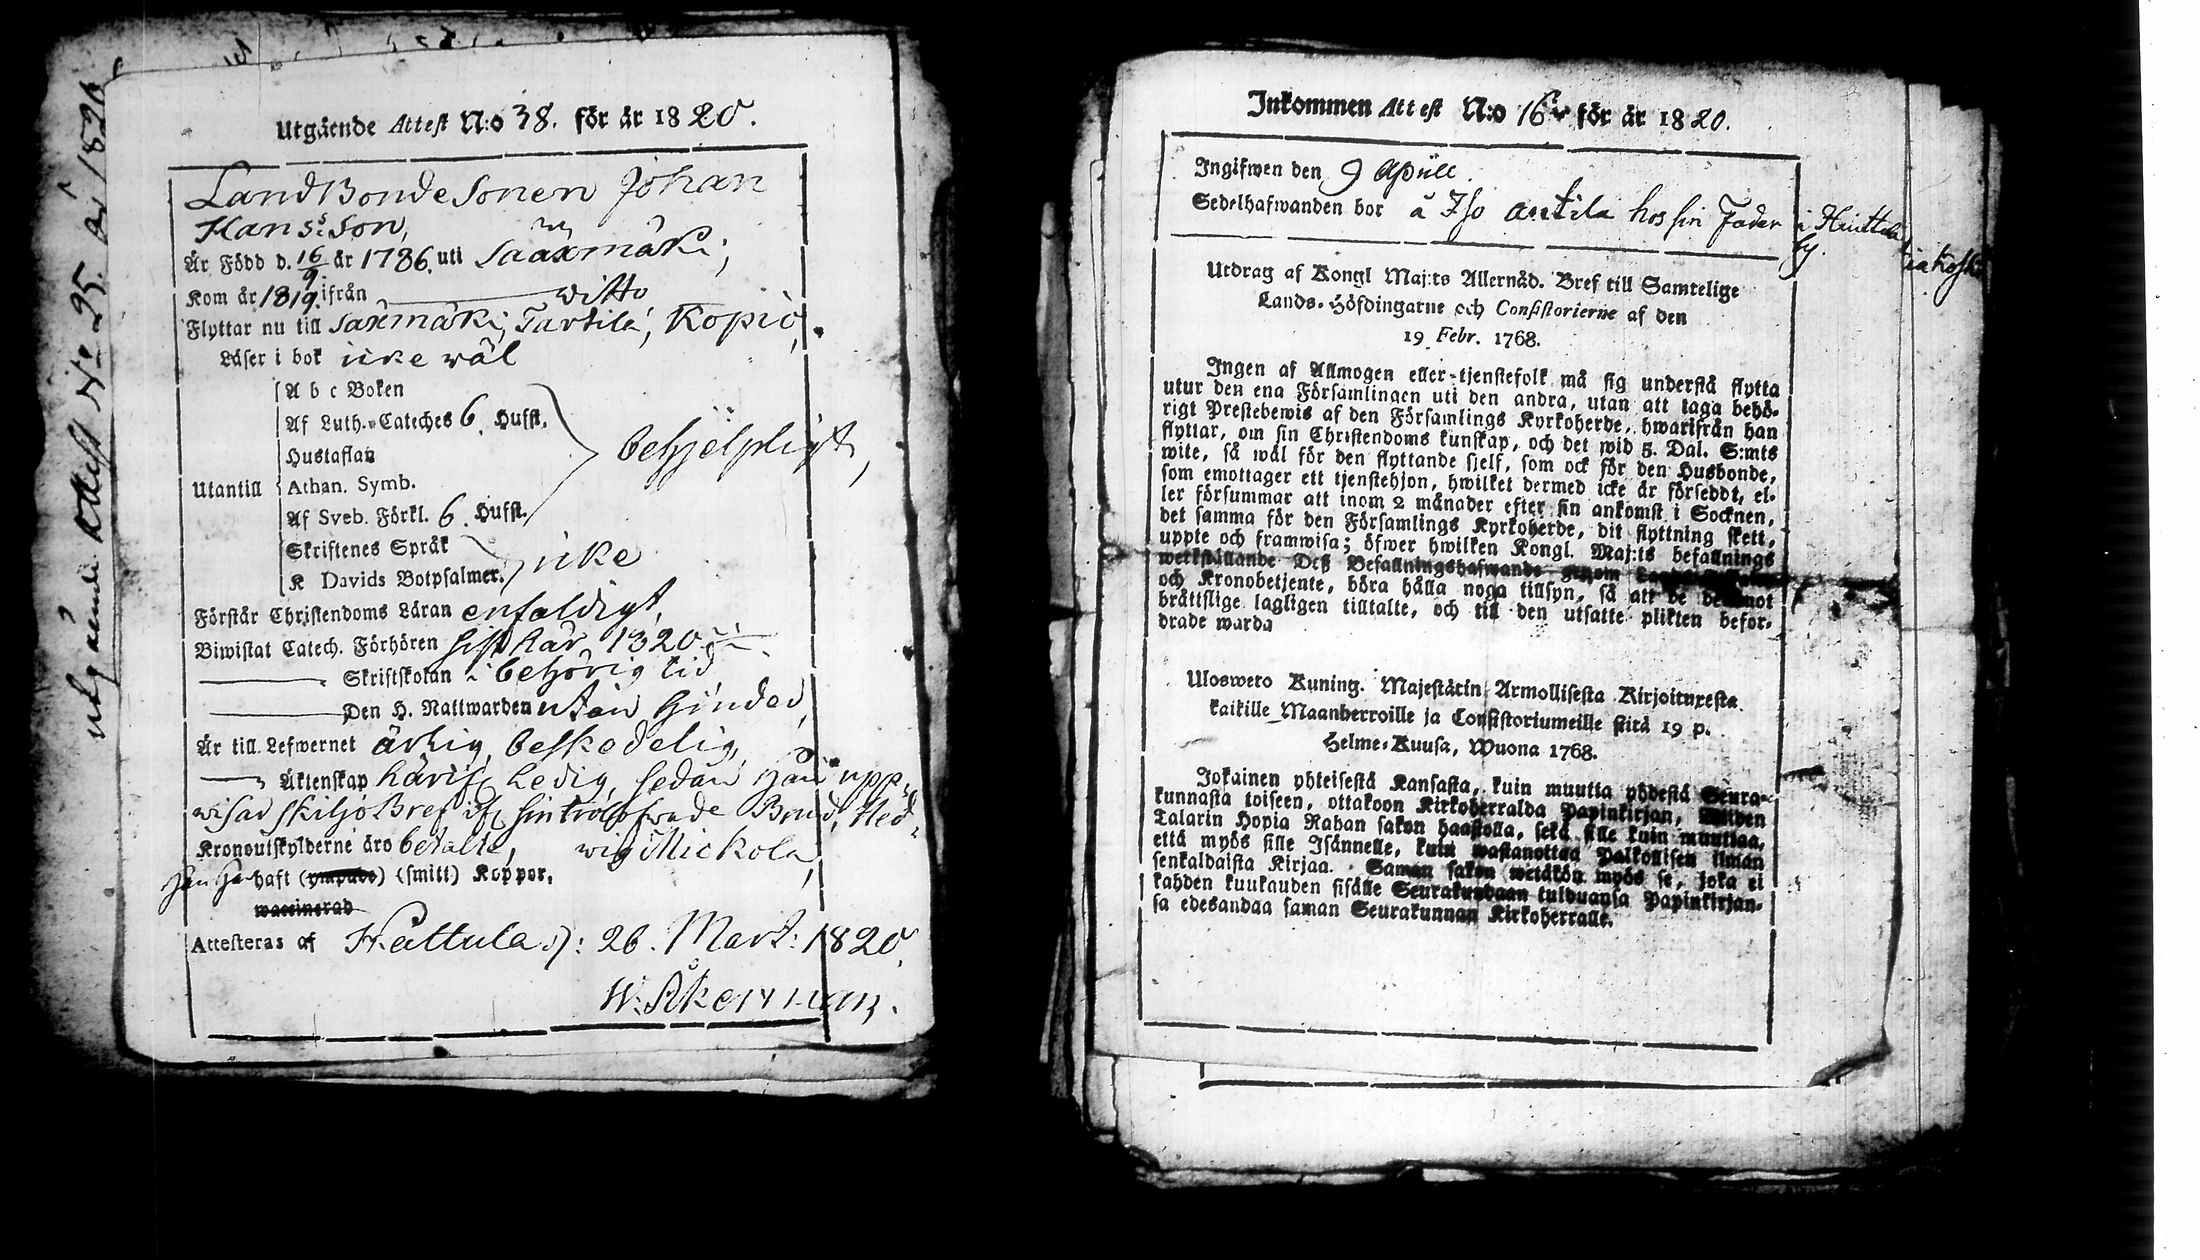 utgående Attest No 25. år 1820
Utgående Attest N:o 38. för år 1820.
LandBondeSonen Johan
Hans:Son,
Är Född d. 16/9 år 1786. uti Sääxmäki;
Kom år 1819. ifrån ditto
Flyttar nu till Saxmäki, Tarttila, Kopio,
Läser i bok icke wäl
A b c Boken
Af Luth. Cateches 6. Hufst.
Hustaflan
Utantill Athan. Symb.
Af Sveb. Förkl. 6. Hufst.
behjelpligt,
Skriftenes Språk
K Davids Botpsalmer.
icke
Förstår Christendoms Läran enfaldigt,
Biwistat Catech. Förhören sist här 1820
Skriftskolan i behörig tid
Den H. Nattwarden utan hinder,
Är till Lefwernet ärlig, beskedelig,
Äktenskap härifr. Ledig, sedan han upp-
wisar skiljoBref ifr. sin trolofwade Brud, Hed-
Kronoutskylderne äro betalte, wig Mickola,
Han Ha haft (ympade) (smitt) Koppor,
waccinerad
Attesteras af Hattula d: 26. Mart: 1820.
W: Åkerman.
Inkommen Attest N:o 16 för år 1820.
Ingifwen den 9 Aprill.
Sedelhafwanden bor å Iso Antila hos sin Fader i Huittula
by.
Utdrag af Kongl Maj:ts Allernåd. Bref till Samtelige
Lands-Höfdingarne och Consistorierne af den
19 Febr. 1768.
Ingen af Allmogen eller tjenstefolk må sig understå flytta
utur den ena Församlingen uti den andra, utan att taga behö-
rigt Prestebewis af den Församlings Kyrkoherde, hwarifrån han
flyttar, om sin Christendoms kunskap, och det wid 5. Dal. S:mts
wite, så wäl för den flyttande sjelf, som ock för den Husbonde,
som emottager ett tjenstehjon, hwilket dermed icke är försedt, el-
ler försummar att inom 2 månader efter sin ankomst i Socknen,
det samma för den Församlings Kyrkoherde, dit flyttning skett,
uppte och framwisa; öfwer hwilken Kongl. Maj:ts befallnings
werkställande Desz Befallningshafwande genom
och Kronobetjente, böra hålla noga tillsyn, så att de deremot
bråttslige lagligen tilltalte, och till den utsatte plikten befor-
drade warda
Ulosweto Kuning. Majestätin Armollisesta Kirjoituxesta
kaikille Maanherroille ja Consistoriumeille siitä 19 p.
Helme-Kuusa, Wuona 1768.
Jokainen yhteisestä Kansasta, kuin muutta yhdestä Seura-
kunnasta toiseen, ottakoon Kirkoherralda Papinkirjan, Wiiden
Talarin Hopia Rahan sakon haastolla, sekä sille kuin muuttaa,
että myös sille Isännelle, kuin wastanottaa Palkollisen ilman
senkaldaista Kirjaa. Saman sakon wetäkön myös se, joka ei
kahden kuukauden sisälle Seurakundaan tulduansa Papinkirjan-
sa edesandaa saman Seurakunnan Kirkoherralle.